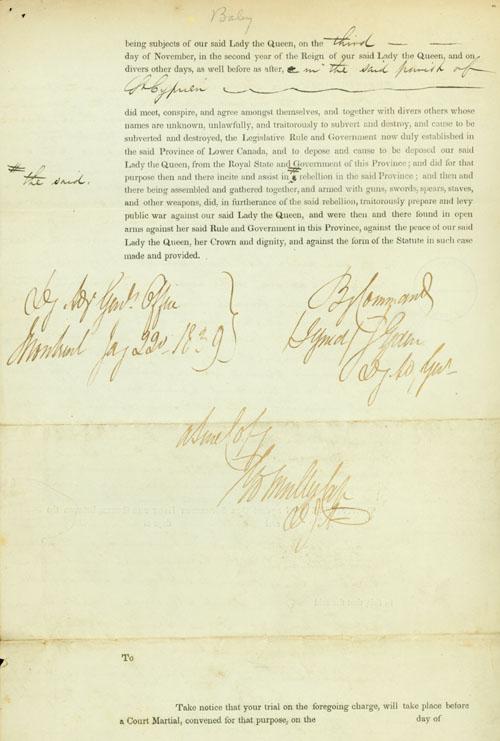 Baby
being subjects of our said Lady the Queen, on the third
day of November, in the second year of the Reign of our said Lady the Queen, and on
divers other days, as well before as after, in the said parish of
St Cyprien
did meet, conspire, and agree amongst themselves, and together with divers others whose
names are unknown, unlawfully, and traitorously to subvert and destroy, and cause to be
subverted and destroyed, the Legislative Rule and Government now duly established in
the said Province of Lower Canada, and to depose and cause to be deposed our said
Lady the Queen, from the Royal State and Government of this Province; and did for that
# the said.
purpose then and there incite and assist in # rebellion in the said Province; and then and
there being assembled and gathered together, and armed with guns, swords, spears, staves,
and other weapons, did, in furtherance of the said rebellion, traitorously prepare and levy
public war against our said Lady the Queen, and were then and there found in open
arms against her said Rule and Government in this Province, against the peace of our said
Lady the Queen, her Crown and dignity, and against the form of the Statute in such case
made and provided.
Dy Adj Genls Office
Montreal Jay 22d
By Command
Signed
Dy Ad, Gen
a true Copy
To
Take notice that your trial on the foregoing charge, will take place before
a Court Martial, convened for that purpose, on the day of